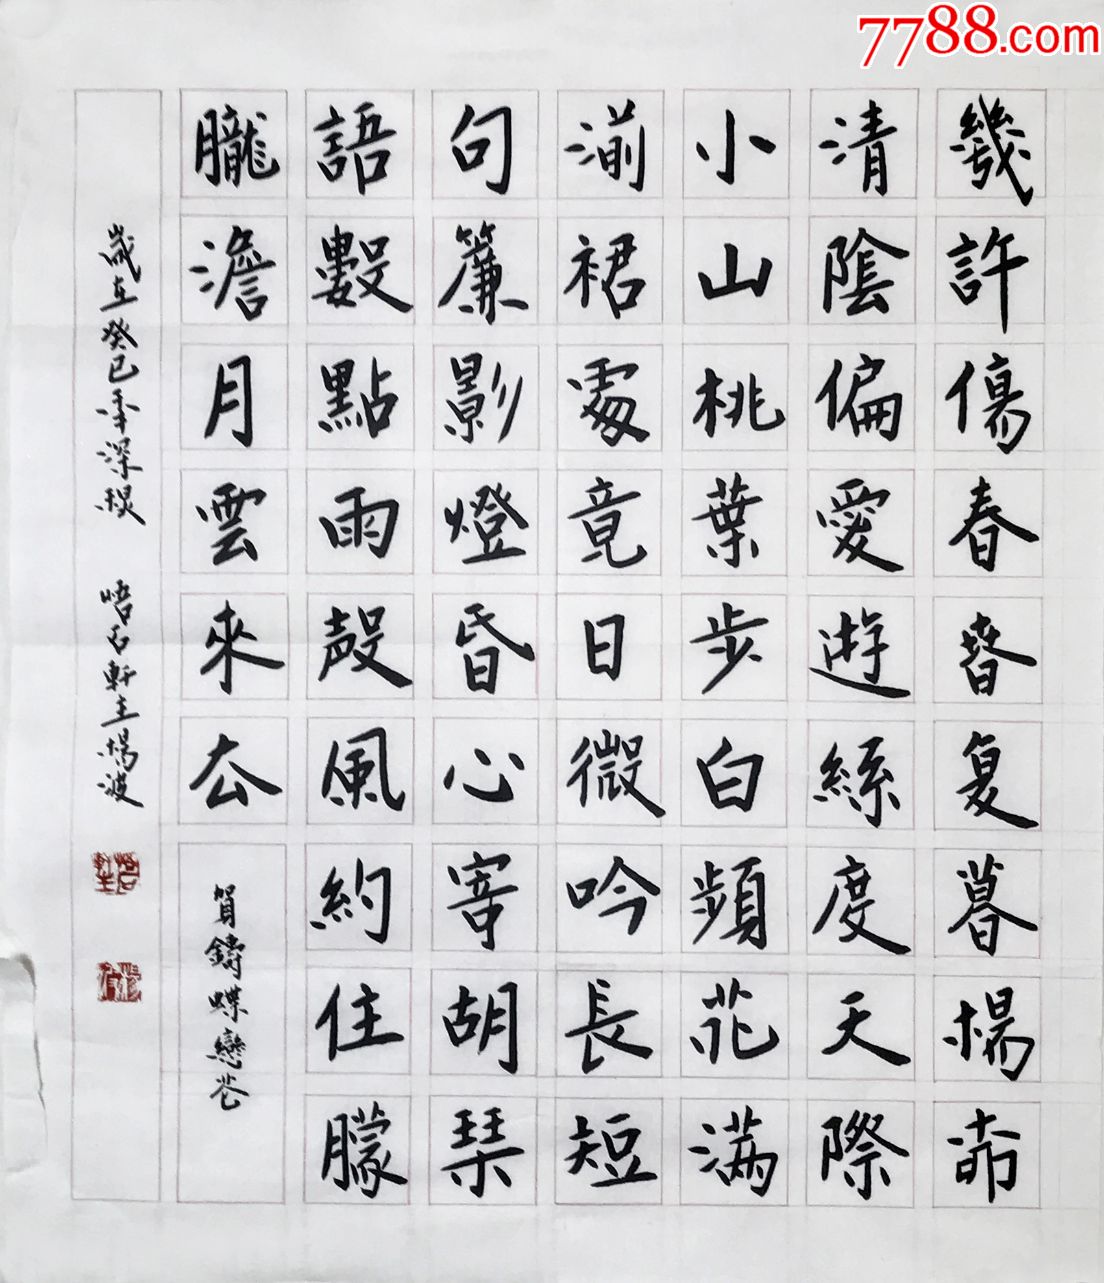 7788.com
幾許傷春春复暮楊柳
清陰偏愛遊絲度天際
小山桃葉步白頻花满
湔裙處竟日微吟長短
句簾影燈昏心寄胡琴
語數點雨聲風約住朦
朧澹月雲來去
賀鑄蝶戀花
歲在癸巳年深秋 悟石軒主楊波